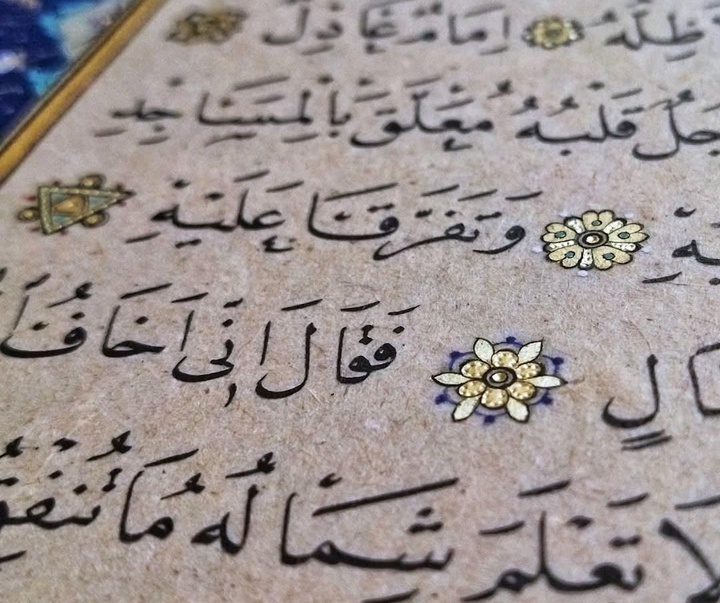 ظِلُّهُ اِمَامٌ عَادِلٌ
جُلٌ قَلْبُهُ مُعَلَّقٌ بِالْمَسَاجِدِ
وَتَفَرَّقَا عَلَيْهِ
مَالٍ فَقَالَ اِنِّى اَخَافُ
لَا تَعْلَمَ شِمَالُهُ مَا تُنْفِقُ